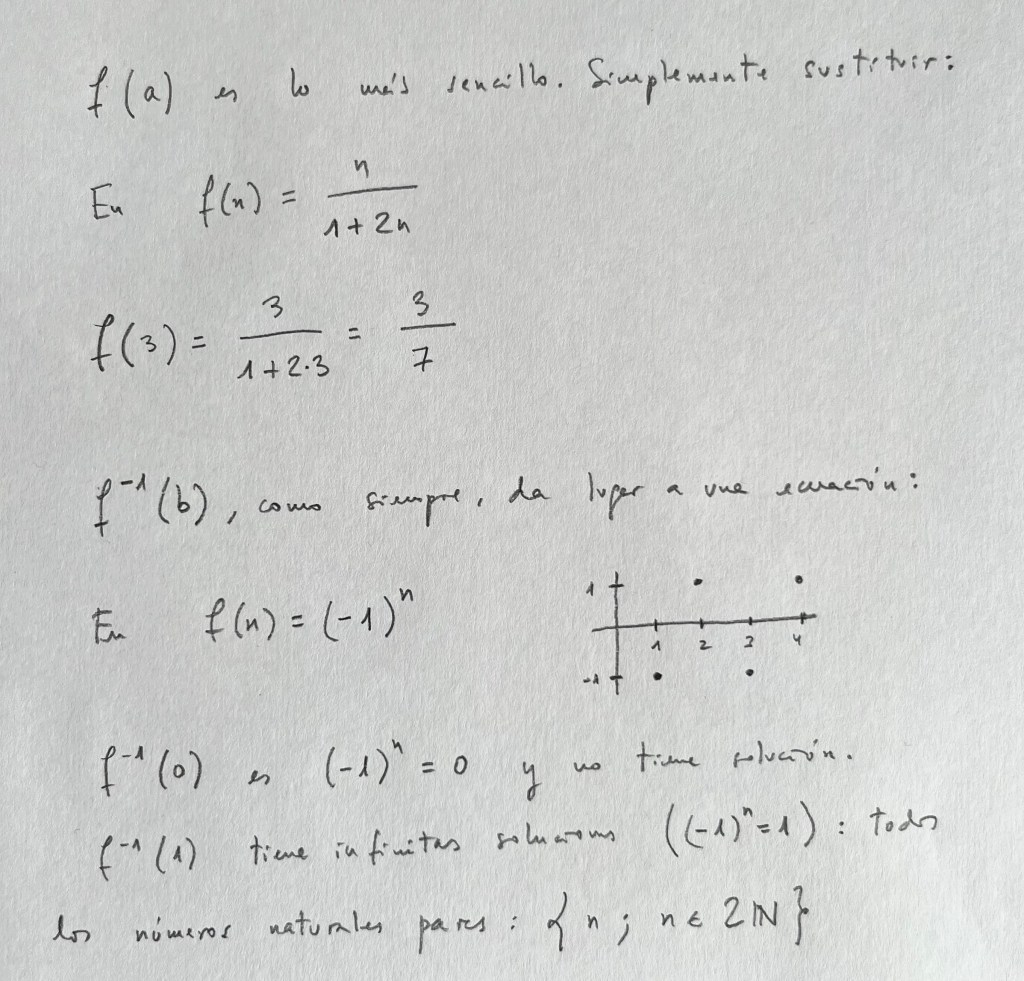 f(a) es lo más sencillo. Simplemente sustituir:
En f(n) = n / (1 + 2n)
f(3) = 3 / (1 + 2·3) = 3 / 7
f⁻¹(b), como siempre, da lugar a una ecuación:
En f(n) = (-1)ⁿ
1
1 2 3 4
-1
f⁻¹(0) es (-1)ⁿ = 0 y no tiene solución.
f⁻¹(1) tiene infinitas soluciones ((-1)ⁿ = 1) : todos
los números naturales pares : { n ; n ∈ 2ℕ }